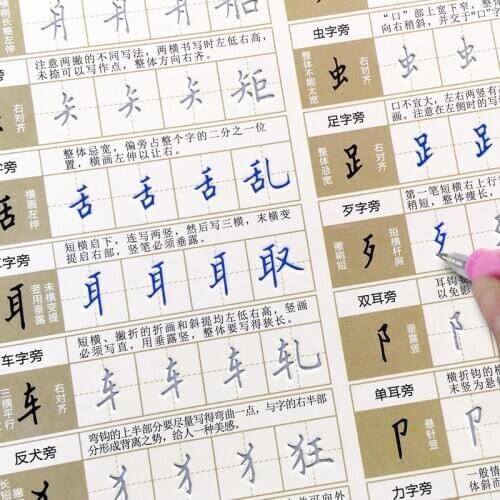 舟 舟 舟
注意两撇的不同写法,两横书写时左低右高,
末捺可以写作点,整体方向右齐。
右对齐
矢 矢 矢 矩
字旁
整体忌宽,偏旁占整个字的二分之一位
置,横画左伸以让右。
横画左伸
舌 舌 舌 舌 乱
字旁
短横启下,连写两竖,然后写三横,末横变
提启右部,竖笔必须垂露。
末横变提
竖用垂露
耳 耳 耳 耳 取
车字旁
短横、撇折的折画和斜提均左低右高,竖画
必须写直,用垂露竖,整体要写得狭长。
右对齐
三横平行
车 车 车 车 轧
反犬旁
弯钩的上半部分要尽量写得弯曲一点,与字的右半部
分形成背离之势,给人一种美感。
犭 犭 犭 狂
虫字旁
“口”部上宽下窄,整
向右稍斜,并交于“口
右对齐
整体不能太宽
虫 虫 虫
足字旁
口不宜大,左右两竖有
画。注意在左侧时的写法
右对齐
整体忌宽
足 足 足
歹字旁
第一笔短横右上行
稍短,整体瘦长,
短横杆肩
撇稍短
歹 歹
双耳旁
耳钩
以免影
垂露竖
阝 阝
单耳旁
横折钩的横
末竖为悬
悬针竖
卩 卩
力字旁
一般情
体斜而